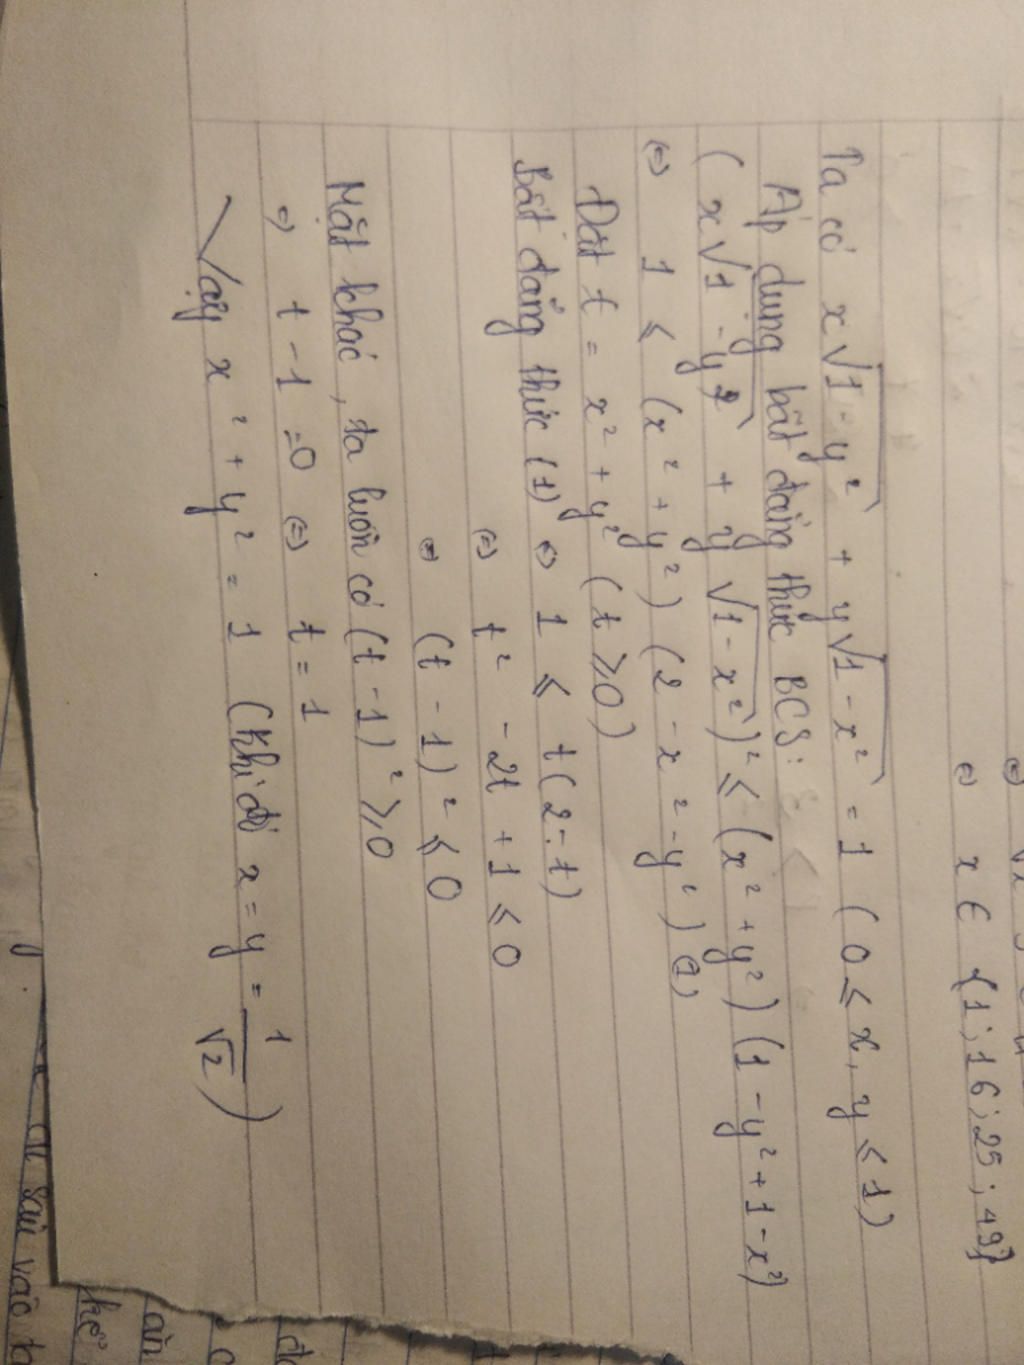 ⇔ x ∈ {1; 16; 25; 49}
Ta có x√(1 - y²) + y√(1 - x²) = 1 (0 ≤ x, y ≤ 1)
Áp dụng bất đẳng thức BCS:
(x√(1 - y²) + y√(1 - x²))² ≤ (x² + y²)(1 - y² + 1 - x²)
⇔ 1 ≤ (x² + y²)(2 - x² - y²) (1)
Đặt t = x² + y² (t ≥ 0)
Bất đẳng thức (1) ⇔ 1 ≤ t(2 - t)
⇔ t² - 2t + 1 ≤ 0
⇔ (t - 1)² ≤ 0
Mặt khác, ta luôn có (t - 1)² ≥ 0
⇒ t - 1 = 0 ⇔ t = 1
Vậy x² + y² = 1 (Khi đó x = y = 1/√2)
sau vào